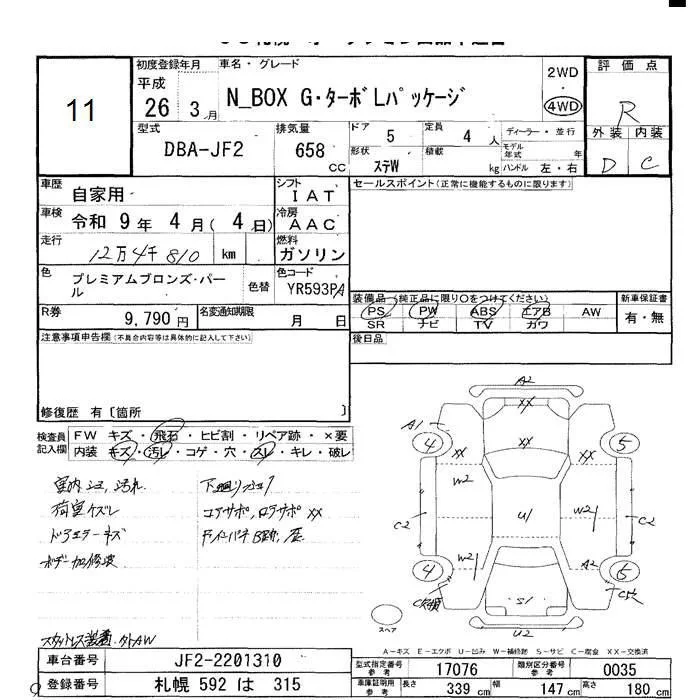 11
初度登録年月
平成
26 3月
車名・グレード
N_BOX G・ターボLパッケージ
2WD
4WD
評価点
R
外装 内装
D C
型式
DBA-JF2
排気量
658 CC
ドア 5
定員 4人
形状 ステW
積載 kg
ディーラー・並行
モデル年式 年
ハンドル 左・右
車歴 自家用
シフト IAT
セールスポイント(正常に機能するものに限ります)
車検 令和 9年 4月(4日)
冷房 AAC
走行 12万4千810 km
燃料 ガソリン
色 プレミアムブロンズ・パール
色替
色コード YR593PA
装備品(純正品に限り○をつけてください)
新車保証書
PS PW ABS エアB AW
有・無
SR ナビ TV カワ
R券 9,790円
名変通知期限 月 日
注意事項申告欄(不具合内容等は具体的に記入して下さい)
後日品
修復歴 有〔箇所 〕
検査員記入欄
FW キズ・飛石・ヒビ割・リペア跡・×要
内装 キズ・汚レ・コゲ・穴・スレ・キレ・破レ
荷室キズレ
コアサポ,ロアサポ XX
A2
XX
A1
4
5
XX
XX
W2
U1
W2
C2
C2
W2
A2
4
5
S1
U2
スペア
A-キズ E-エクボ U-凹み W-補修跡 S-サビ C-腐食 XX-交換済
車台番号 JF2-2201310
型式指定番号参考 17076
類別区分番号参考 0035
登録番号 札幌 592 は 315
車庫証明用参考
長さ 339 cm
幅 147 cm
高さ 180 cm